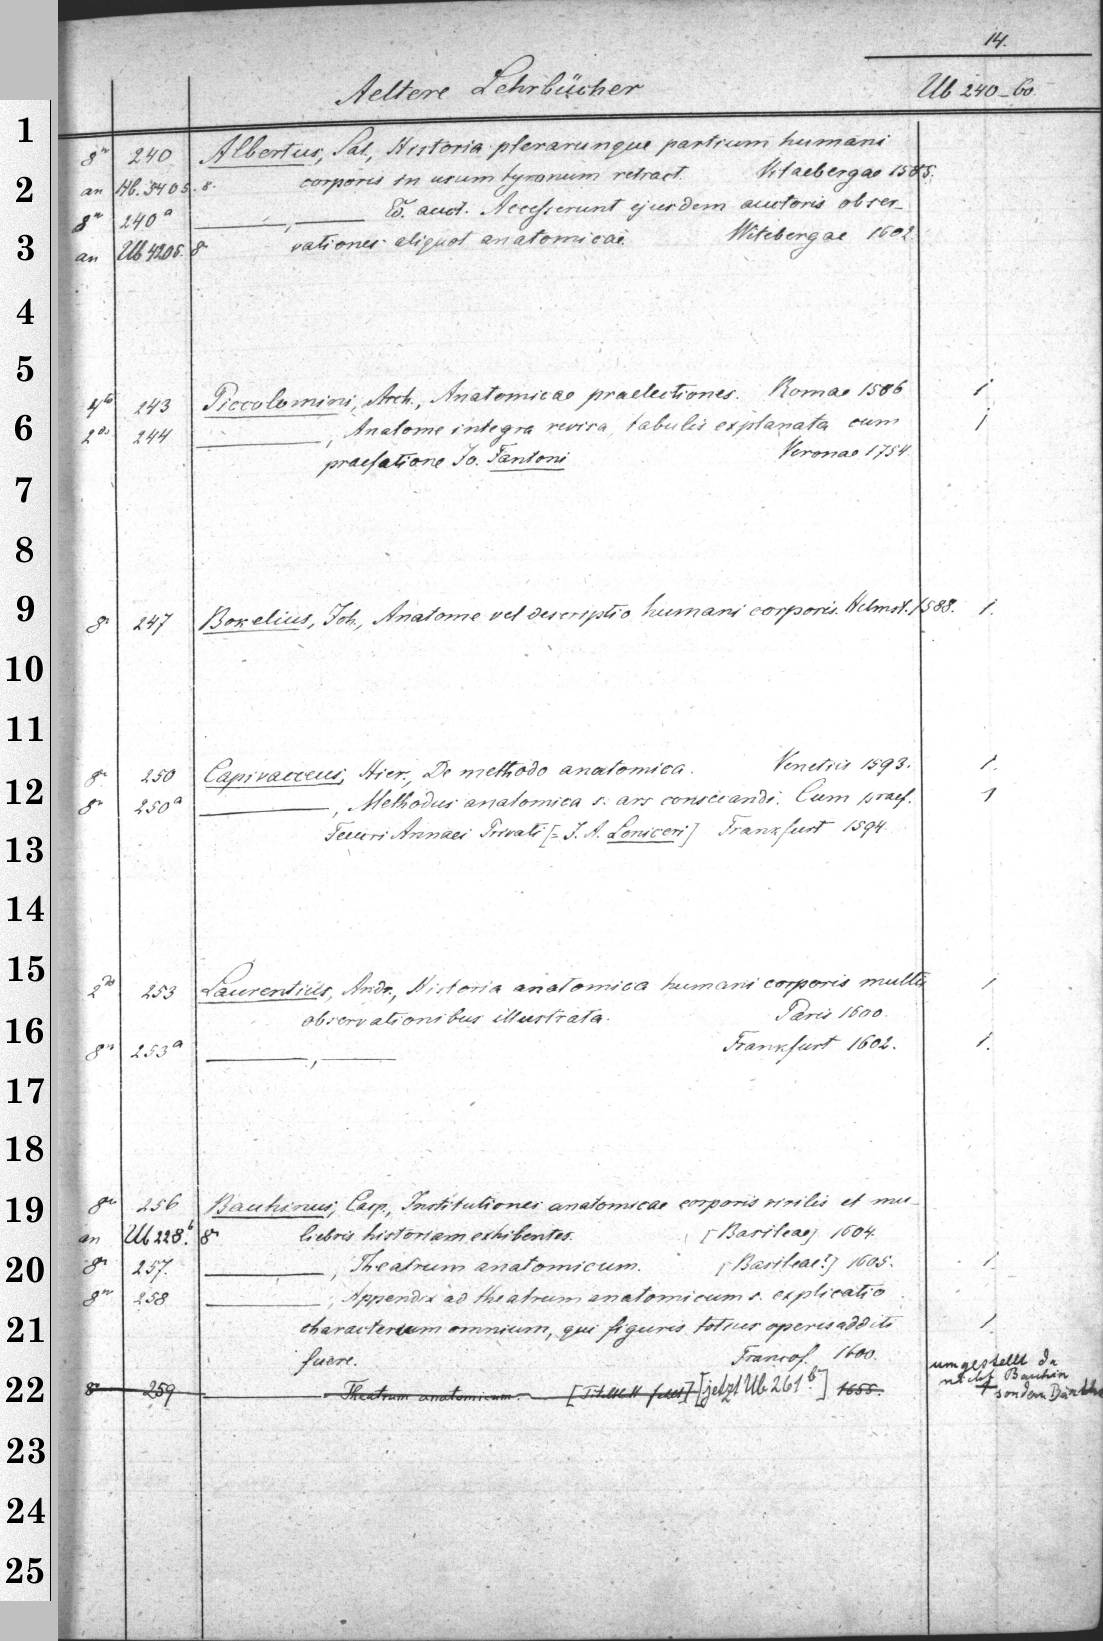 14.
Aeltere Lehrbücher Ub 240-60.
1
8° 240 Albertus, Sal., Historia plerarunque partium humani
2
an Hb. 3405. 8. corporis in usum tyronum retract. Vitaebergae 1585.
8° 240a ——, —— Ed. auct. Accesserunt ejusdem auctoris obser-
3
an Ub 4206. 8° vationes aliquot anatomicae. Witebergae 1602.
4
5
4to 243 Piccolomini, Arch., Anatomicae praelectiones. Romae 1586 1
6
2do 244 ——, Anatome integra revisa, tabulis explanata cum 1
praefatione Jo. Fantoni Veronae 1754.
7
8
9
8° 247 Bokelius, Joh., Anatome vel descriptio humani corporis. Helmst. 1588. 1.
10
11
8° 250 Capivacceus, Hier., De methodo anatomica. Venetiis 1593. 1.
12
8° 250a ——, Methodus anatomica s. ars consecandi. Cum praef. 1
Teucri Annaei Privati [= J. A. Loniceri] Frankfurt 1594.
13
14
15
2do 253 Laurentius, Andr., Historia anatomica humani corporis multis 1
observationibus illustrata. Paris 1600.
16
8° 253a ——, —— Frankfurt 1602. 1.
17
18
19
8° 256 Bauhinus, Casp., Institutiones anatomicae corporis virilis et mu-
an Ub 228b. 8° liebris historiam exhibentes. [Basileae] 1604.
20
8° 257. ——, Theatrum anatomicum. [Basileae?] 1605. 1
8° 258 ——, Appendix ad theatrum anatomicum s. explicatio
21
characterum omnium, qui figuris totius operis additi 1
fuere. Francof. 1600.
umgestellt da
22
8° 259 —— Theatrum anatomicum. [Titelbl. fehlt] [jetzt Ub 261b.] 1655. nicht Bauhin
sondern
23
24
25